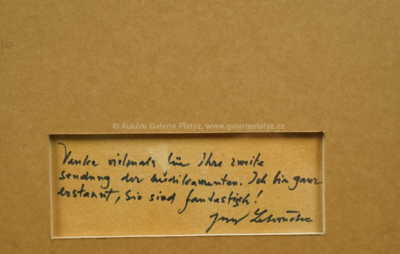 © Aukční Galerie Platýz, www.galerieplatyz.cz
Danke vielmals für ihre zweite
sendung der Medikamenten. Ich bin ganz
erstaunt, Sie sind fantastisch!